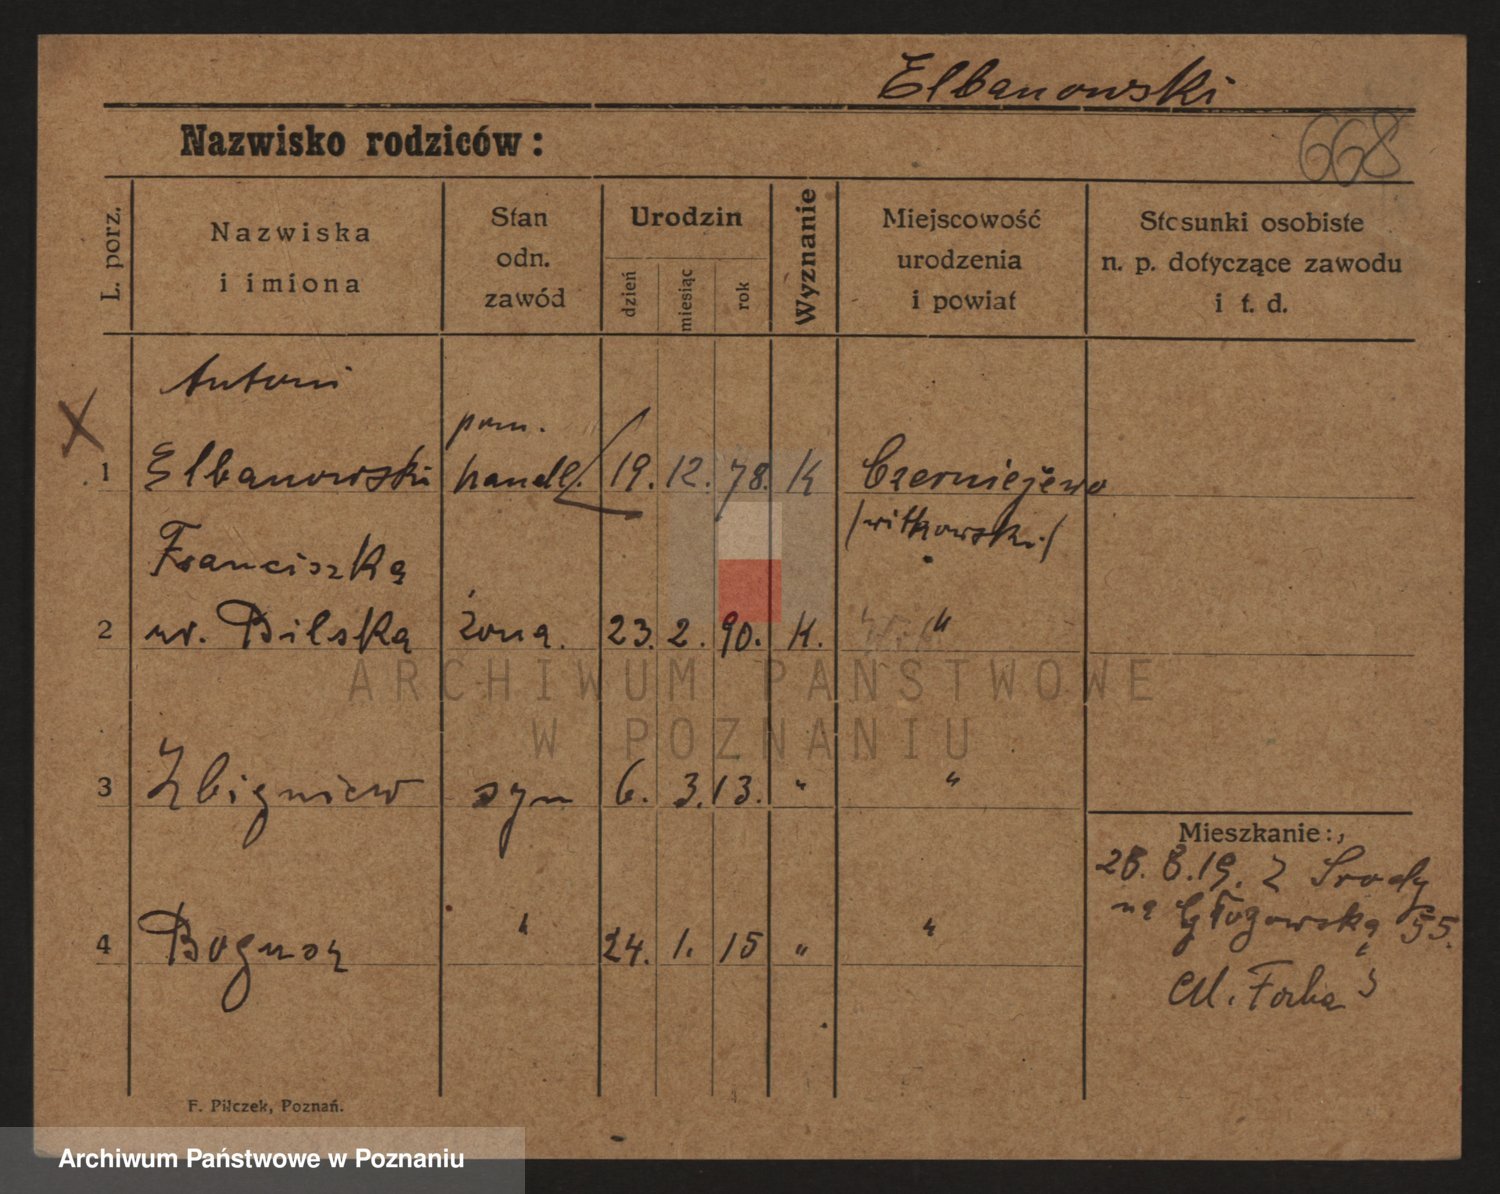 Elbanowski
Nazwisko rodziców:
668
L. porz.
Nazwiska
i imiona
Stan
odn.
zawód
Urodzin
dzień
miesiąc
rok
Wyznanie
Miejscowość
urodzenia
i powiat
Stosunki osobiste
n. p. dotyczące zawodu
i t. d.
X
Antoni
pom.
1 Elbanowski handl. 19. 12. 78. K Czerniejewo
/witkowski/
Franciszka
2 ur. Bilska żona. 23. 2. 90. K. "
ARCHIWUM PAŃSTWOWE
W POZNANIU
3 Zbigniew syn 6. 3. 13. " "
Mieszkanie:
28. 8. 19. z Środy
na Głogowską 55.
4 Bogusz " 24. 1. 15 " "
F. Pilczek, Poznań.
Archiwum Państwowe w Poznaniu